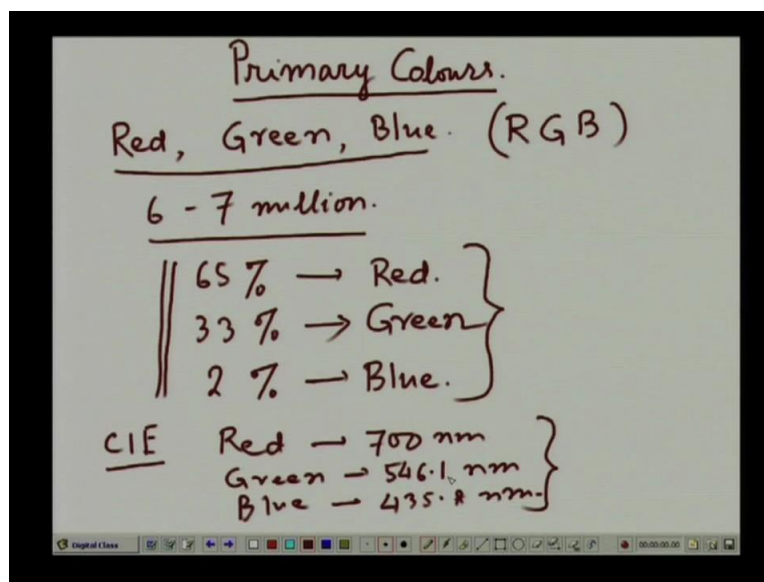 Primary Colours.
Red, Green, Blue. (RGB)
6 - 7 million.
65 % → Red.
33 % → Green
2 % → Blue.
CIE Red → 700 nm
Green → 546.1 nm
Blue → 435.8 nm.
Digital Class
00:00:00.00